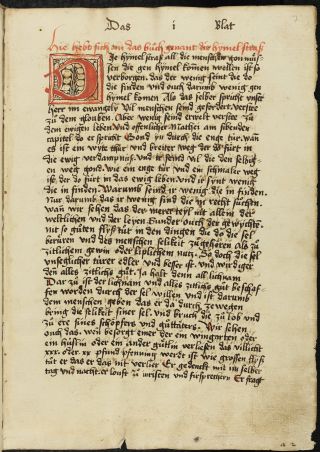 Das i Blat
Hie hebt sich an das buch genant die hymel straß
Die hymel straß all die menschen gon müs
sen die gen hymel komen wellen ist so
verborgen, das der wenig seind die do
die finden und ouch darumb wenig gen
hymel komen Als das selber spricht unser
herr im ewangely Vil menschen seind gefordert, verstee
zu dem glouben. Aber wenig seind erwelt verstee zu
dem ewigen leben Und offenlicher Mathei am sibenden
capitel do er spricht Gond yn durch die enge tür, wan
es ist ein wyte thür und breiter weg der do fürt in
die ewig verdampnuß. und ir seind vil die den selbi
en weg gond. wie ein enge tür und ein schmaler weg
ist der do fürt in das ewig leben. und ir synt wenig
die in finden. Warumb seind ir wenig die in finden.
Nur darumb das ir wenig seind die in recht suchen.
wan wir sehen das der merer teyl uß allein der
weltlichen und der leyen Sunder ouch der gewychte
nit so güten flyß tür in den dingen die do die sel
berüren und des menschen selikeit zugehören Als zu
zitlichem gewin und liplichem nutz. So doch die sel
unseglicher türer edler und besser ist. und wirdiger
den alles zitlichs güt. Ja halt denn all lichnam
Dar zu ist der lichnam und alles zitlig güt beschaf
fen worden durch der sel willen und ist darumb
dem menschen geben das er da durch zewegen
bring die selikeit siner sel. und bruch die zu lob und
zu ere sines schöpfers und güttäters. Wir sehen
ouch das. wen besorget einer der ein wingarten oder
ein hüßlin oder ein ander gütlin verliesen das villicht
xxx. oder xx pfund pfening werdt ist wie grossen flyß
tür er das er das nit verlier Er gedenckt mit im selber
tag und nacht. er louft zu wysen und fürsprechern Er fragt